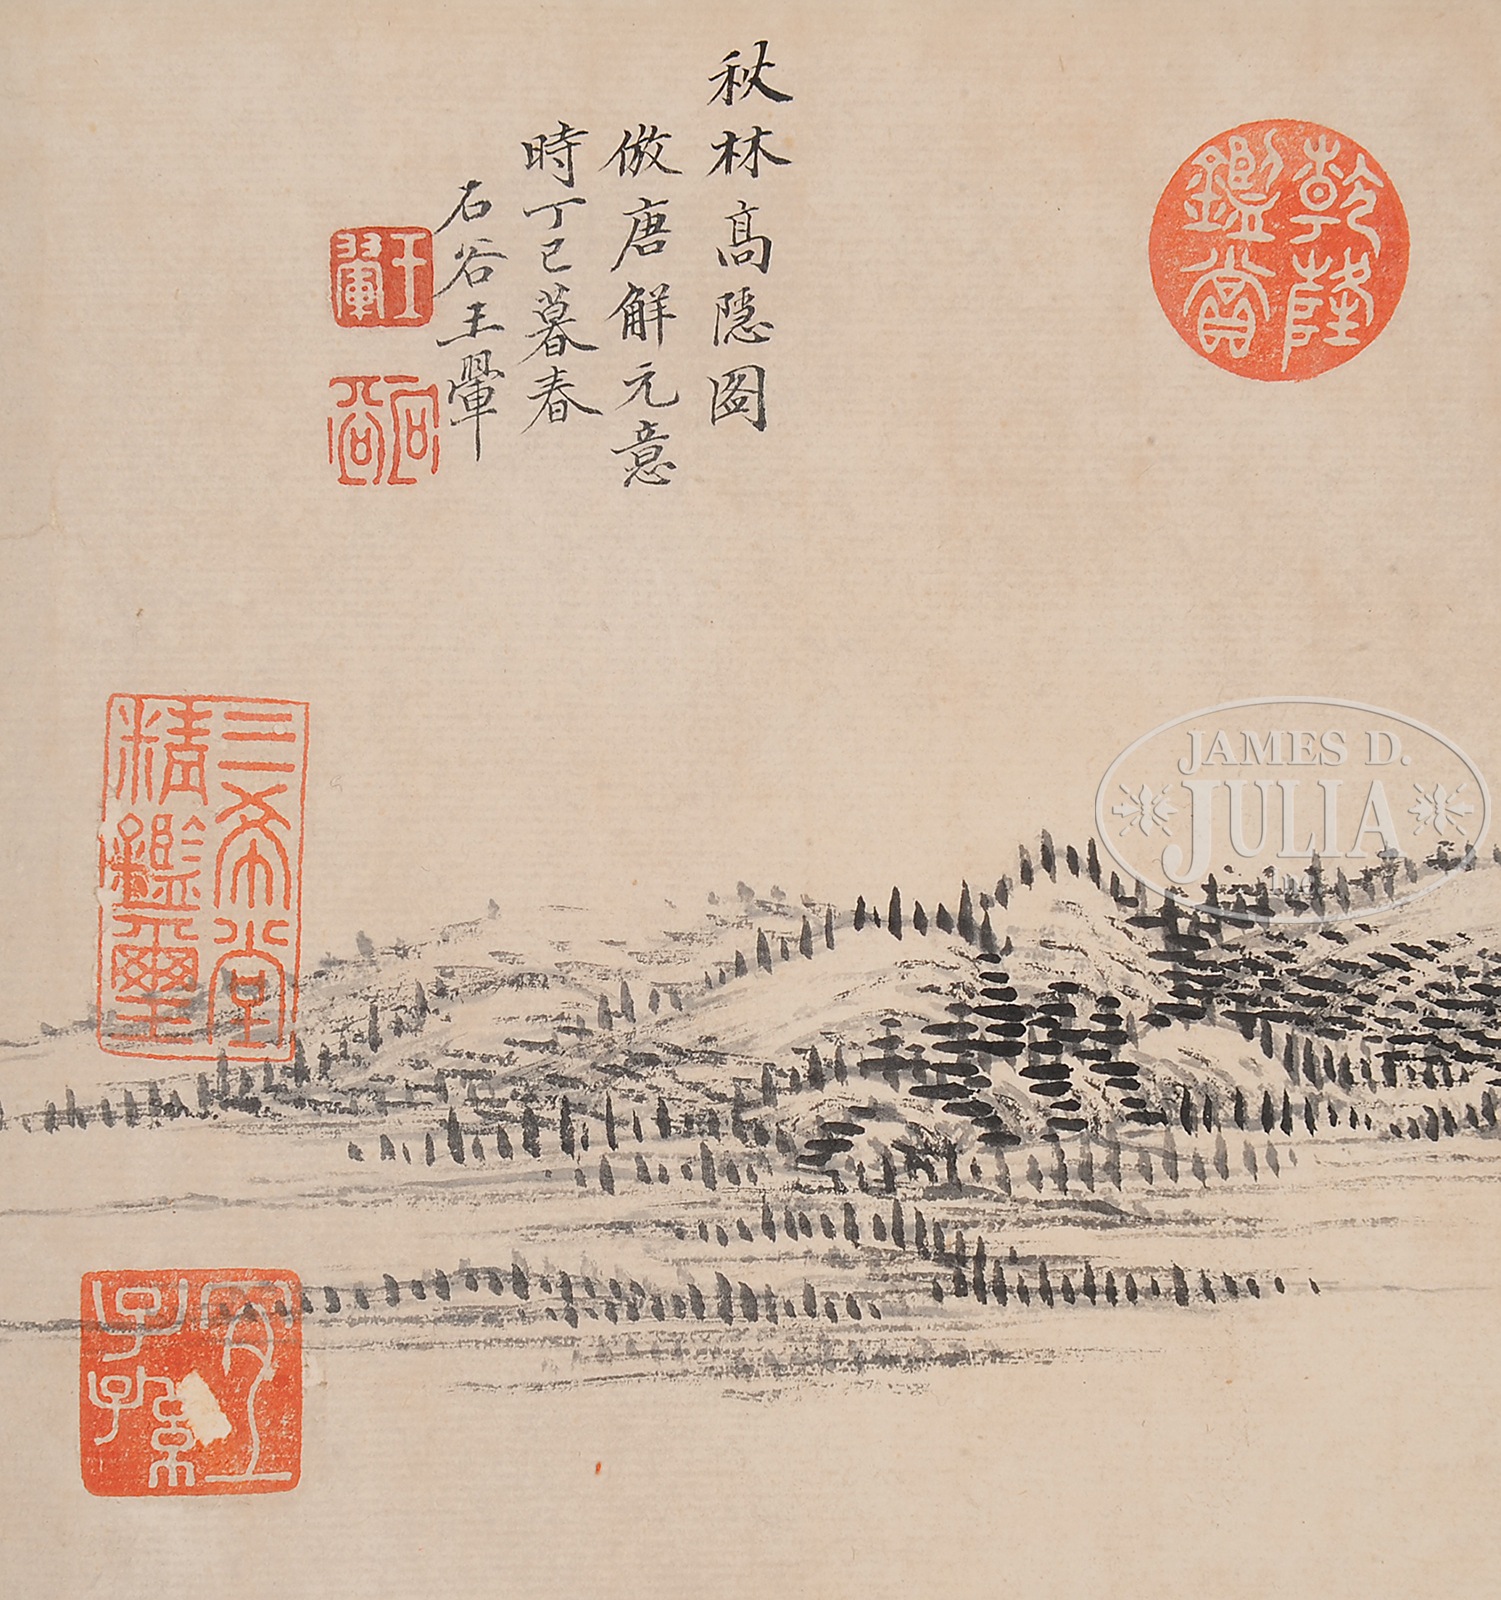 秋林高隐图
倣唐解元意
時丁已暮春
石谷王翬
王翬
石谷
乾隆鑑賞
三希堂精鑑璽
宜子孫
JAMES D.
JULIA
Inc.